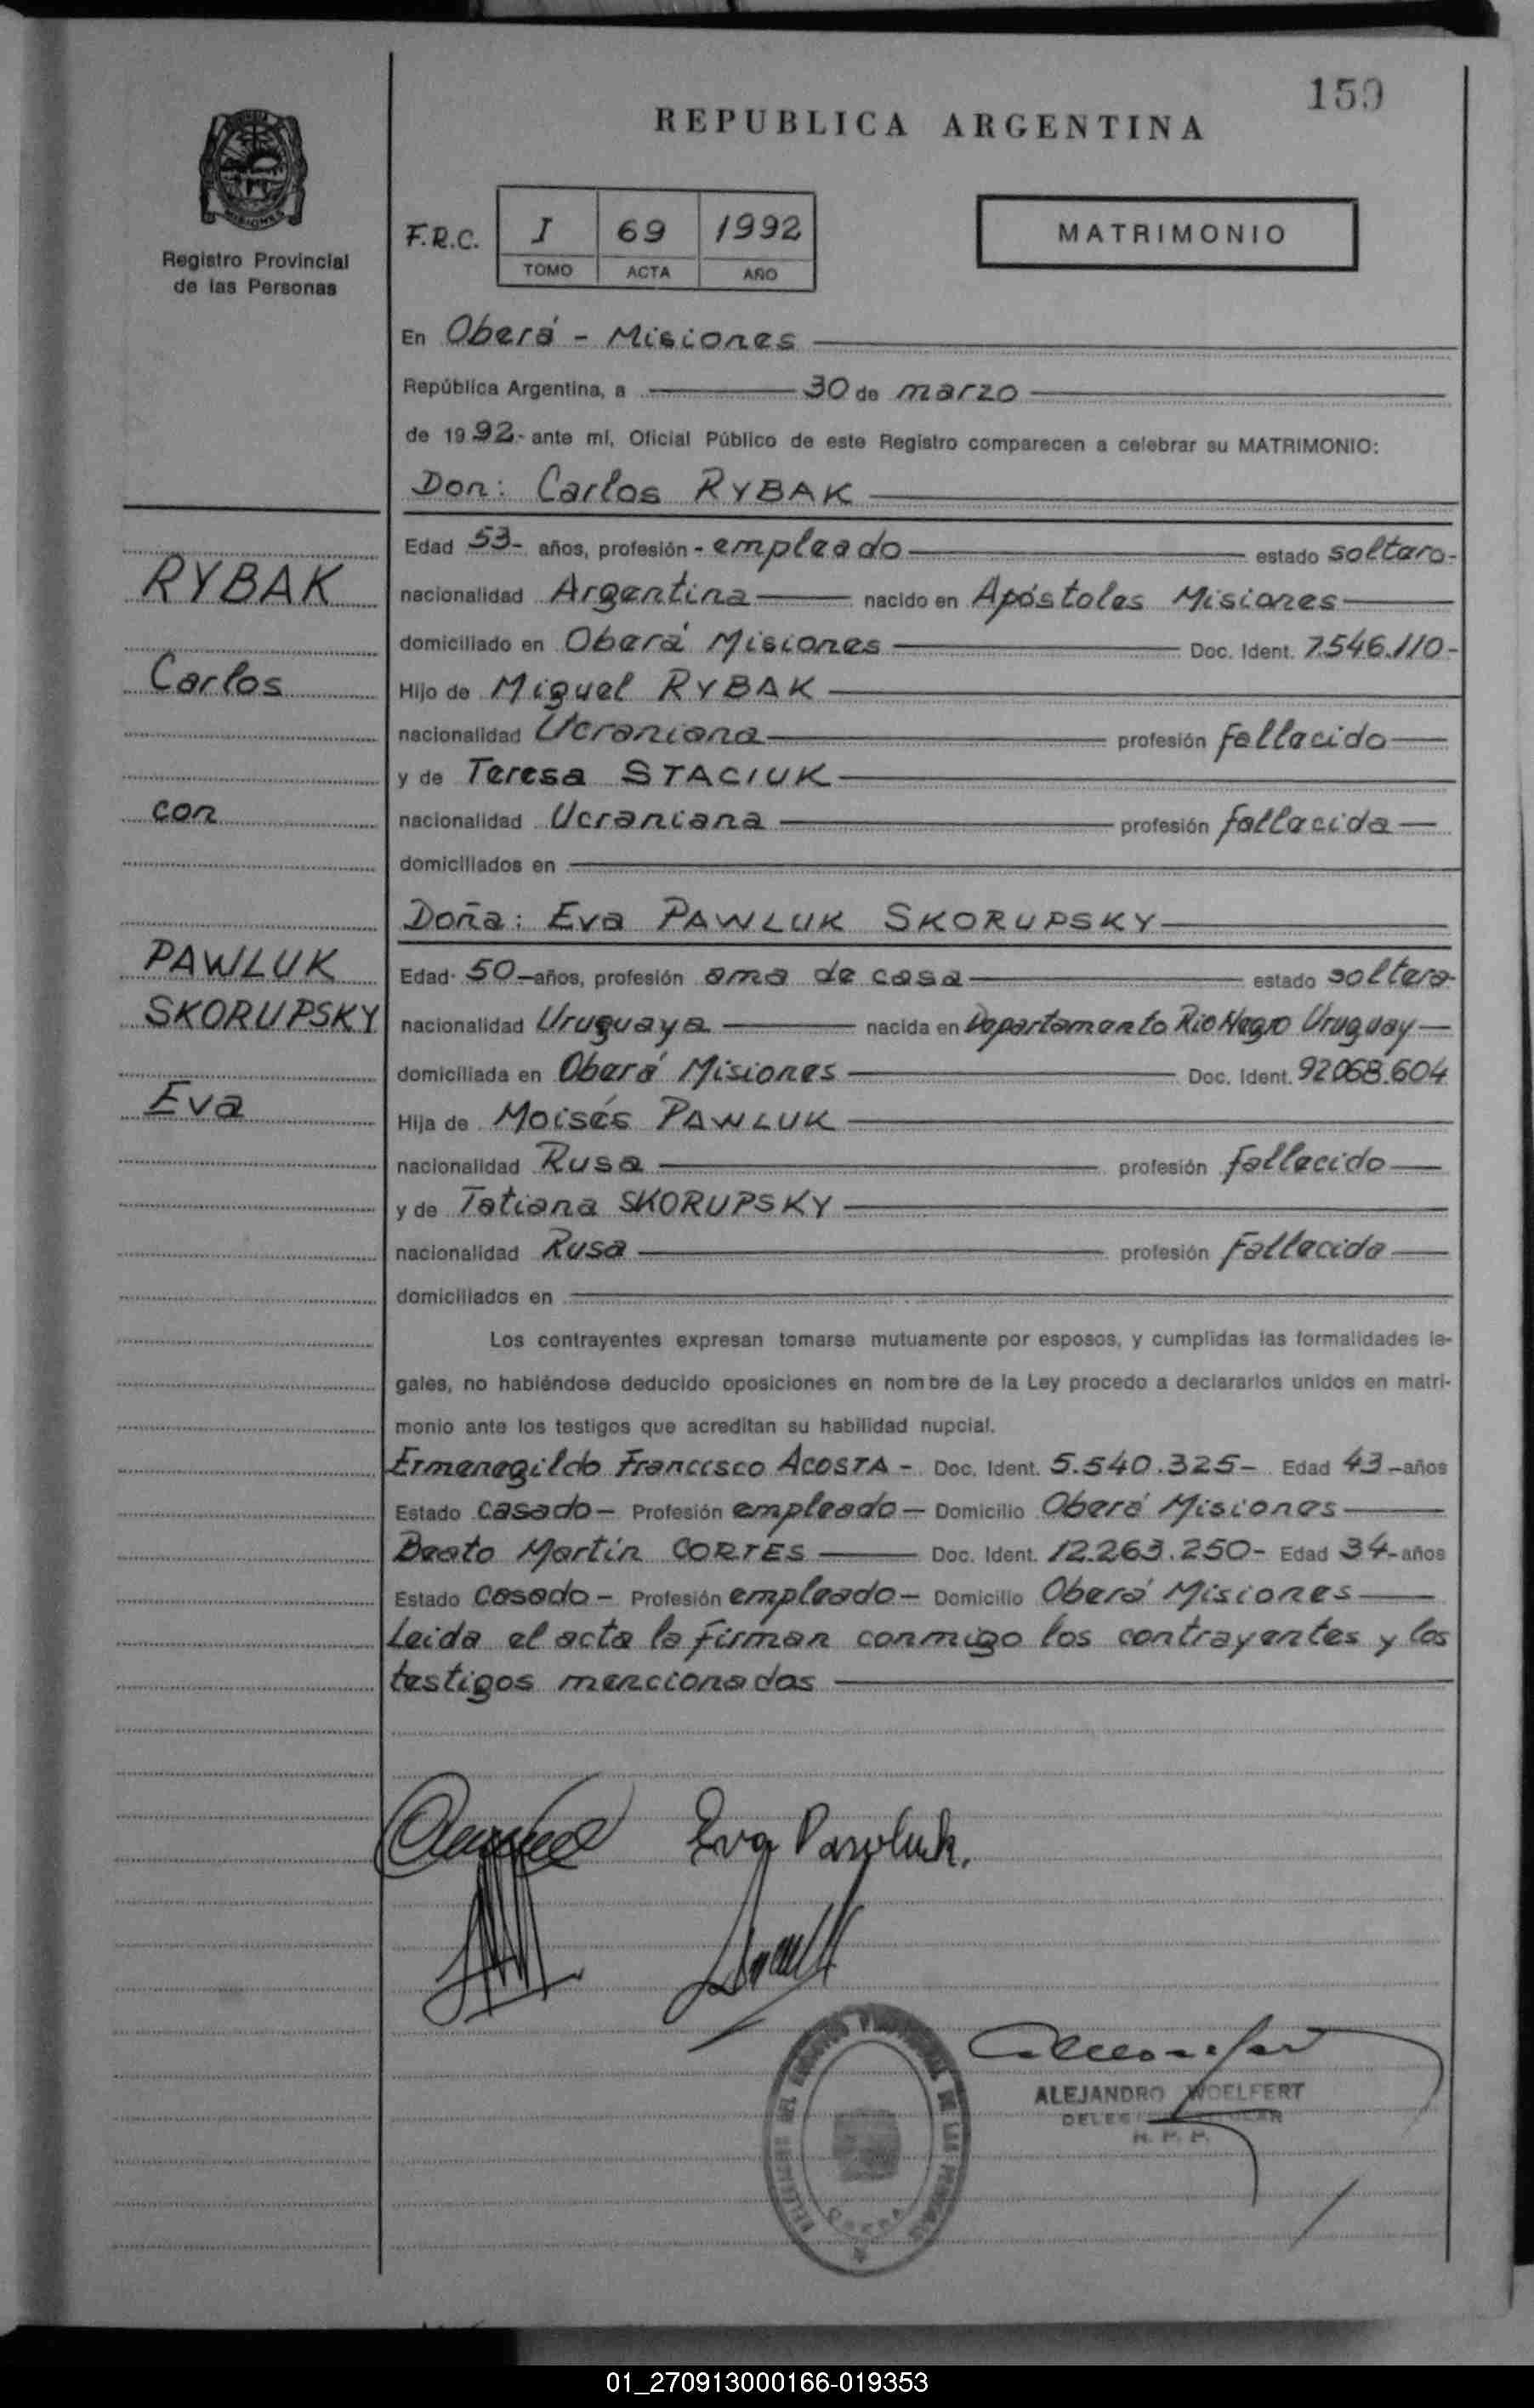 159
REPUBLICA ARGENTINA
MISIONES
Registro Provincial
de las Personas
F.R.C. I 69 1992
TOMO ACTA AÑO
MATRIMONIO
En Oberá - Misiones
República Argentina, a 30 de marzo
de 1992- ante mí, Oficial Público de este Registro comparecen a celebrar su MATRIMONIO:
Don: Carlos RYBAK
RYBAK
Carlos
con
PAWLUK
SKORUPSKY
Eva
Edad 53- años, profesión - empleado estado soltero-
nacionalidad Argentina nacido en Apóstoles Misiones
domiciliado en Oberá Misiones Doc. Ident. 7.546.110-
Hijo de Miguel RYBAK
nacionalidad Ucraniana profesión fallecido
y de Teresa STACIUK
nacionalidad Ucraniana profesión fallecida
domiciliados en
Doña: Eva PAWLUK SKORUPSKY
Edad 50-años, profesión ama de casa estado soltera-
nacionalidad Uruguaya nacida en Departamento Rio Negro Uruguay
domiciliada en Oberá Misiones Doc. Ident. 92.068.604
Hija de Moisés PAWLUK
nacionalidad Rusa profesión fallecido
y de Tatiana SKORUPSKY
nacionalidad Rusa profesión Fallecida
domiciliados en
Los contrayentes expresan tomarse mutuamente por esposos, y cumplidas las formalidades le-
gales, no habiéndose deducido oposiciones en nombre de la Ley procedo a declararlos unidos en matri-
monio ante los testigos que acreditan su habilidad nupcial.
Ermenegildo Francisco ACOSTA - Doc. Ident. 5.540.325- Edad 43-años
Estado casado- Profesión empleado- Domicilio Oberá Misiones
Beato Martin CORTES Doc. Ident. 12.263.250- Edad 34-años
Estado casado- Profesión empleado- Domicilio Oberá Misiones
Leida el acta la firman conmigo los contrayentes y los
testigos mencionados
Eva Pawluk.
ALEJANDRO WOELFERT
R. P. P.
OBERA
01_270913000166-019353